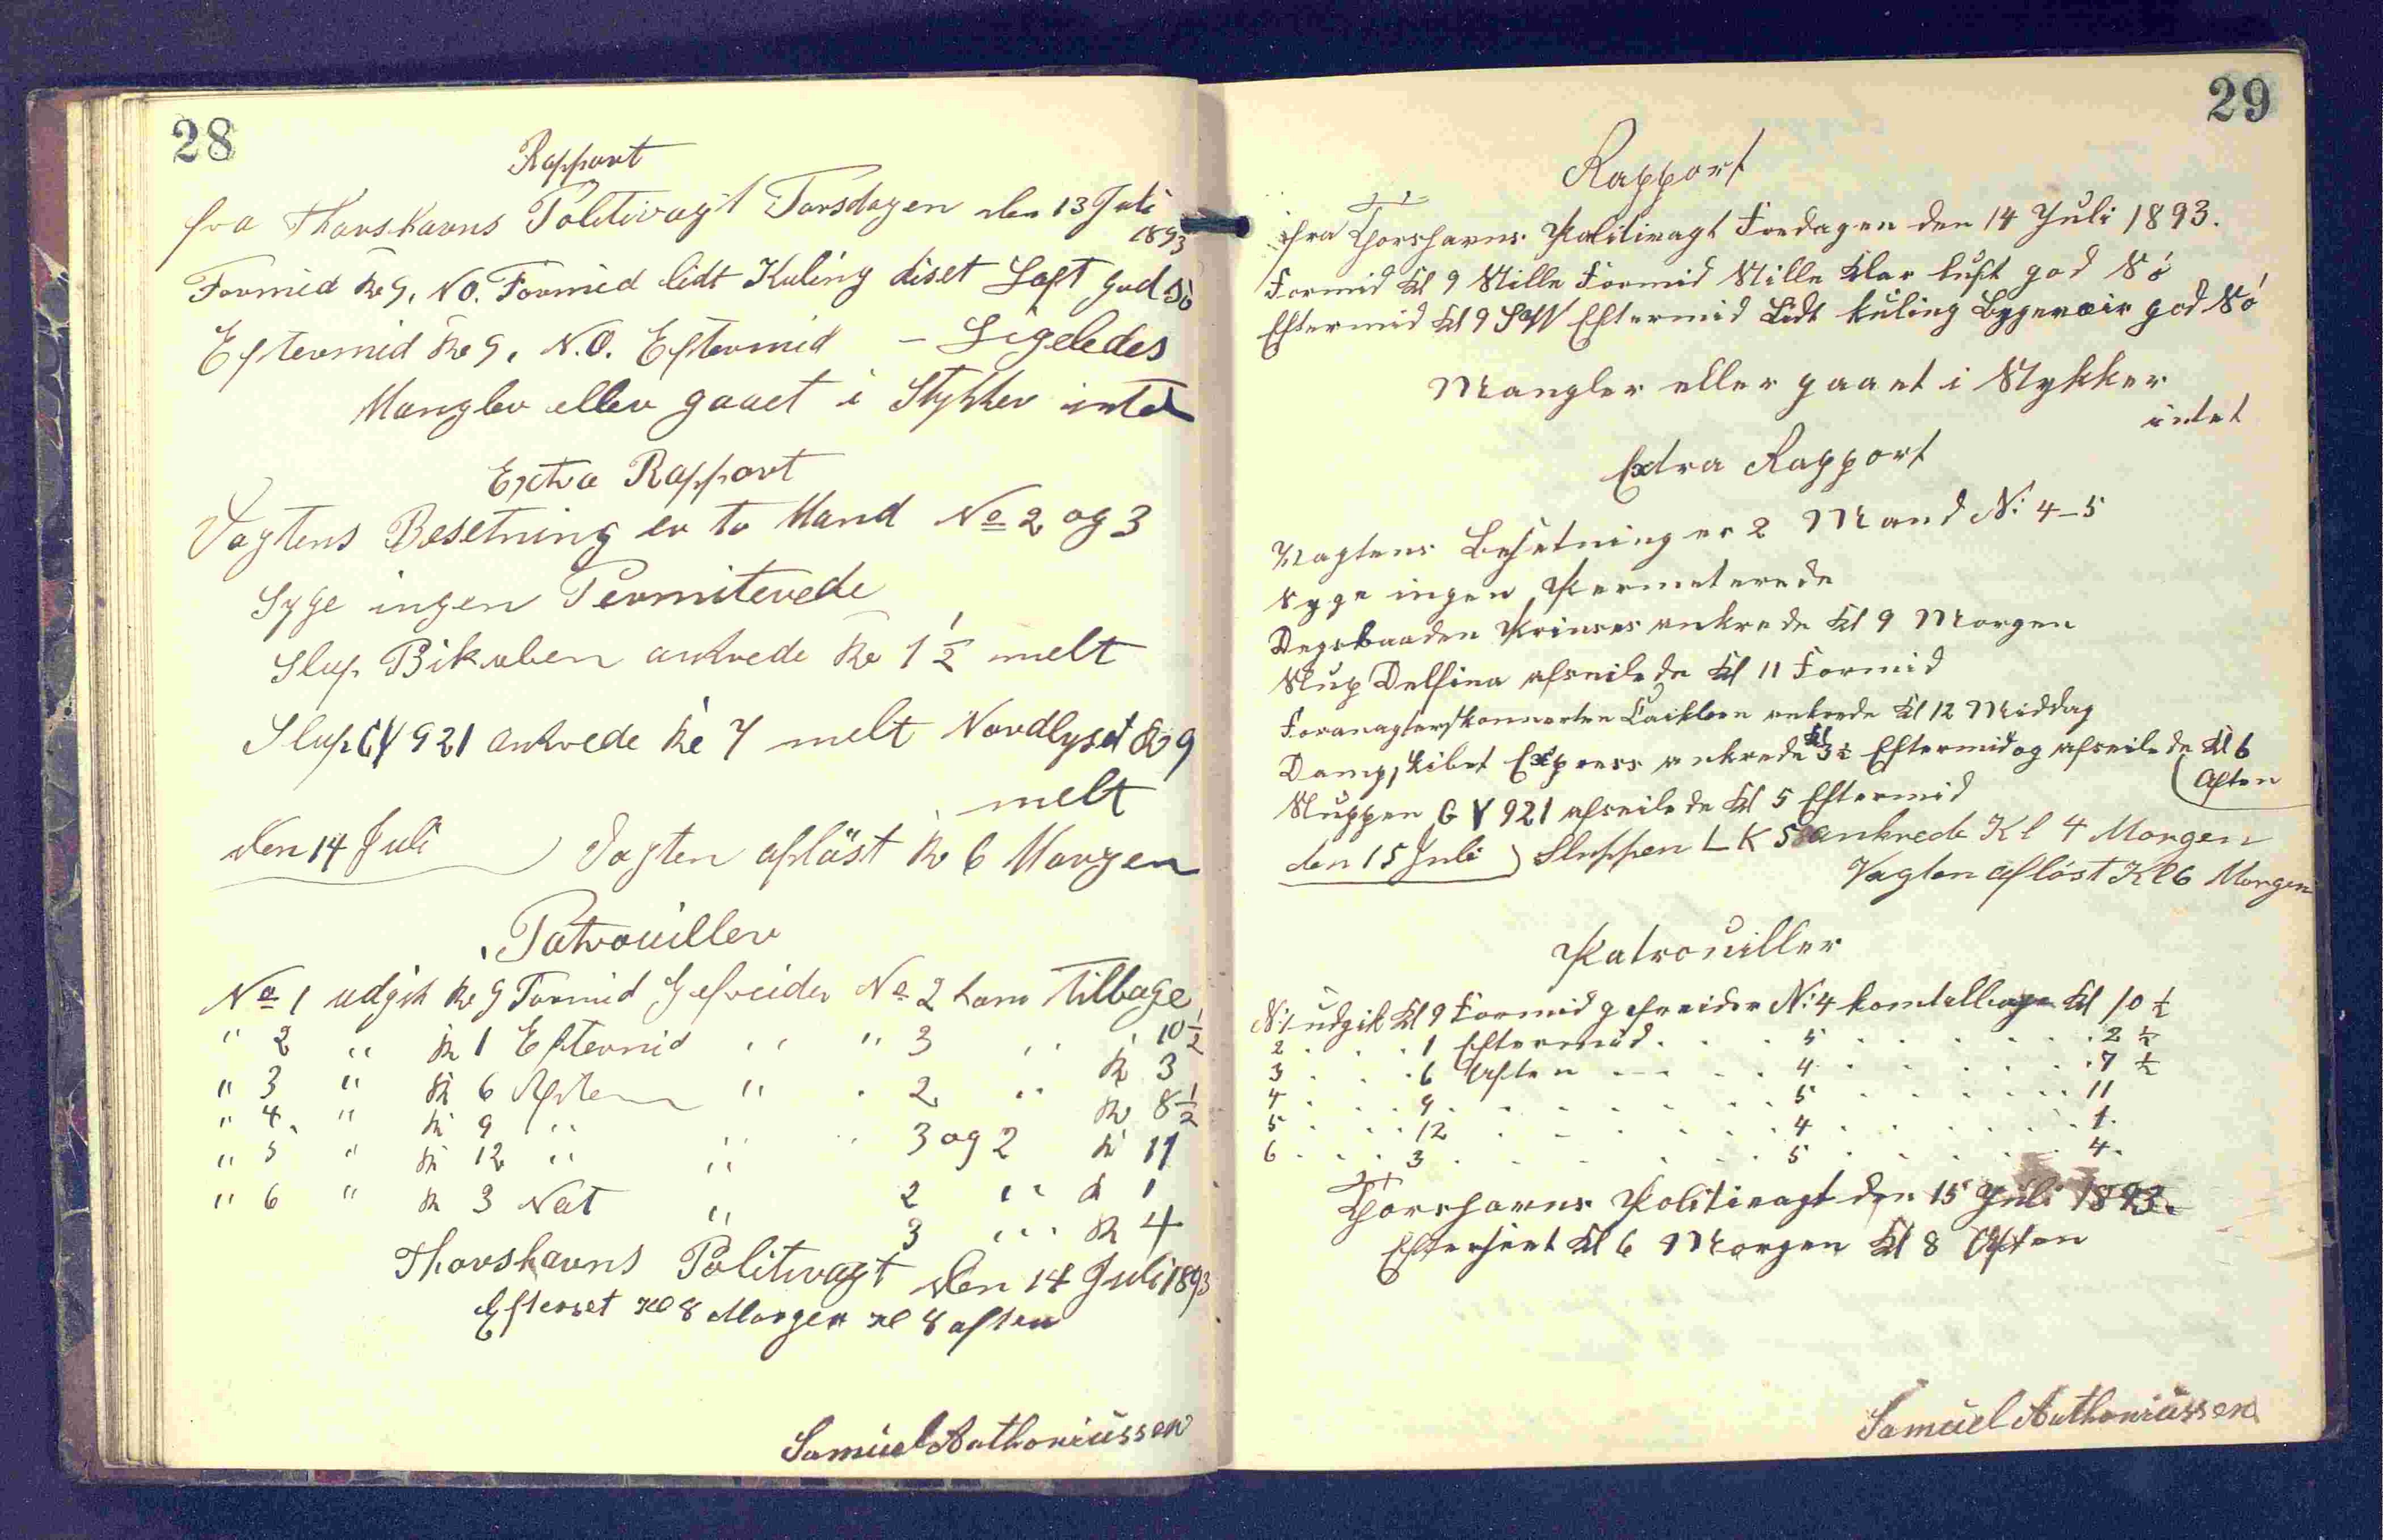 28
Rapport
fra Thorshavns Politivagt Torsdagen den 13 Juli
1893
Formid Kl 9. NO. Formid lidt Kuling diset Luft god Sö
Eftermid Kl 9. N.O. Eftermid – Ligeledes
Mangler eller gaaet i Stykker intet
Extra Rapport
Vagtens Besetning er to Mand No 2 og 3
Syge ingen Permiterede
Slup Bikuben ankrede Kl 1 1/2 melt
Slup GY 921 ankrede Kl 7 melt Nordlyset Kl 9
melt
den 14 Juli ) Vagten aflöst Kl 6 Morgen
Patrouiller
No 1 udgik Kl 9 Formid Gefreider No 2 kom tilbage
" 2 " Kl 1 Eftermid " " 3 " " 10 1/2
" 3 " Kl 6 Aften " " 2 " Kl 3
" 4 " Kl 9 " " " 3 og 2 Kl 8 1/2
" 5 " Kl 12 " " 2 " Kl 11
" 6 " Kl 3 Nat " 3 " Kl 1
Kl 4
Thorshavns Politivagt den 14 Juli 1893
Efterset Kl 8 Morgen Kl 8 aften
Samuel Anthoniussen
29
Rapport
fra Thorshavns Politivagt Fredagen den 14 Juli 1893.
Formid Kl 9 Stille Formid Stille Klar luft god Sö
Eftermid Kl 9 SW Eftermid Lidt kuling Bygeveir god Sö
Mangler eller gaaet i Stykker
intet
Extra Rapport
Vagtens Besetning er 2 Mand N: 4–5
Syge ingen Permeterede
Degsbaaden Prinses ankrede Kl 9 Morgen
Slup Delfina afseilede Kl 11 Formid
ankrede Kl 12 Middag
Dampskibet Express ankrede Kl 3 1/2 Eftermid og afseilede Kl 6
(Aften
Sluppen GY 921 afseilede Kl 5 Eftermid
den 15 Juli ) Sluppen LK 58 ankrede Kl 4 Morgen
Vagten aflöst Kl 6 Morgen
Patrouiller
N: 1 udgik Kl 9 Formid gefreider N: 4 kom tilbage Kl 10 1/2
2 . . . 1 Eftermid . . . 5 . . . . . . 2 1/2
3 . . . 6 Aften . . . . 4 . . . . . . 7 1/2
4 . . . 9 . . . . . . . 5 . . . . . . 11
5 . . . 12 . . . . . . 4 . . . . . . 1.
6 . . . 3 . . . . . . . 5 . . . . . . 4.
Thorshavns Politivagt den 15 Juli 1893.
Efterseet Kl 6 Morgen Kl 8 Aften
Samuel Anthoniussen